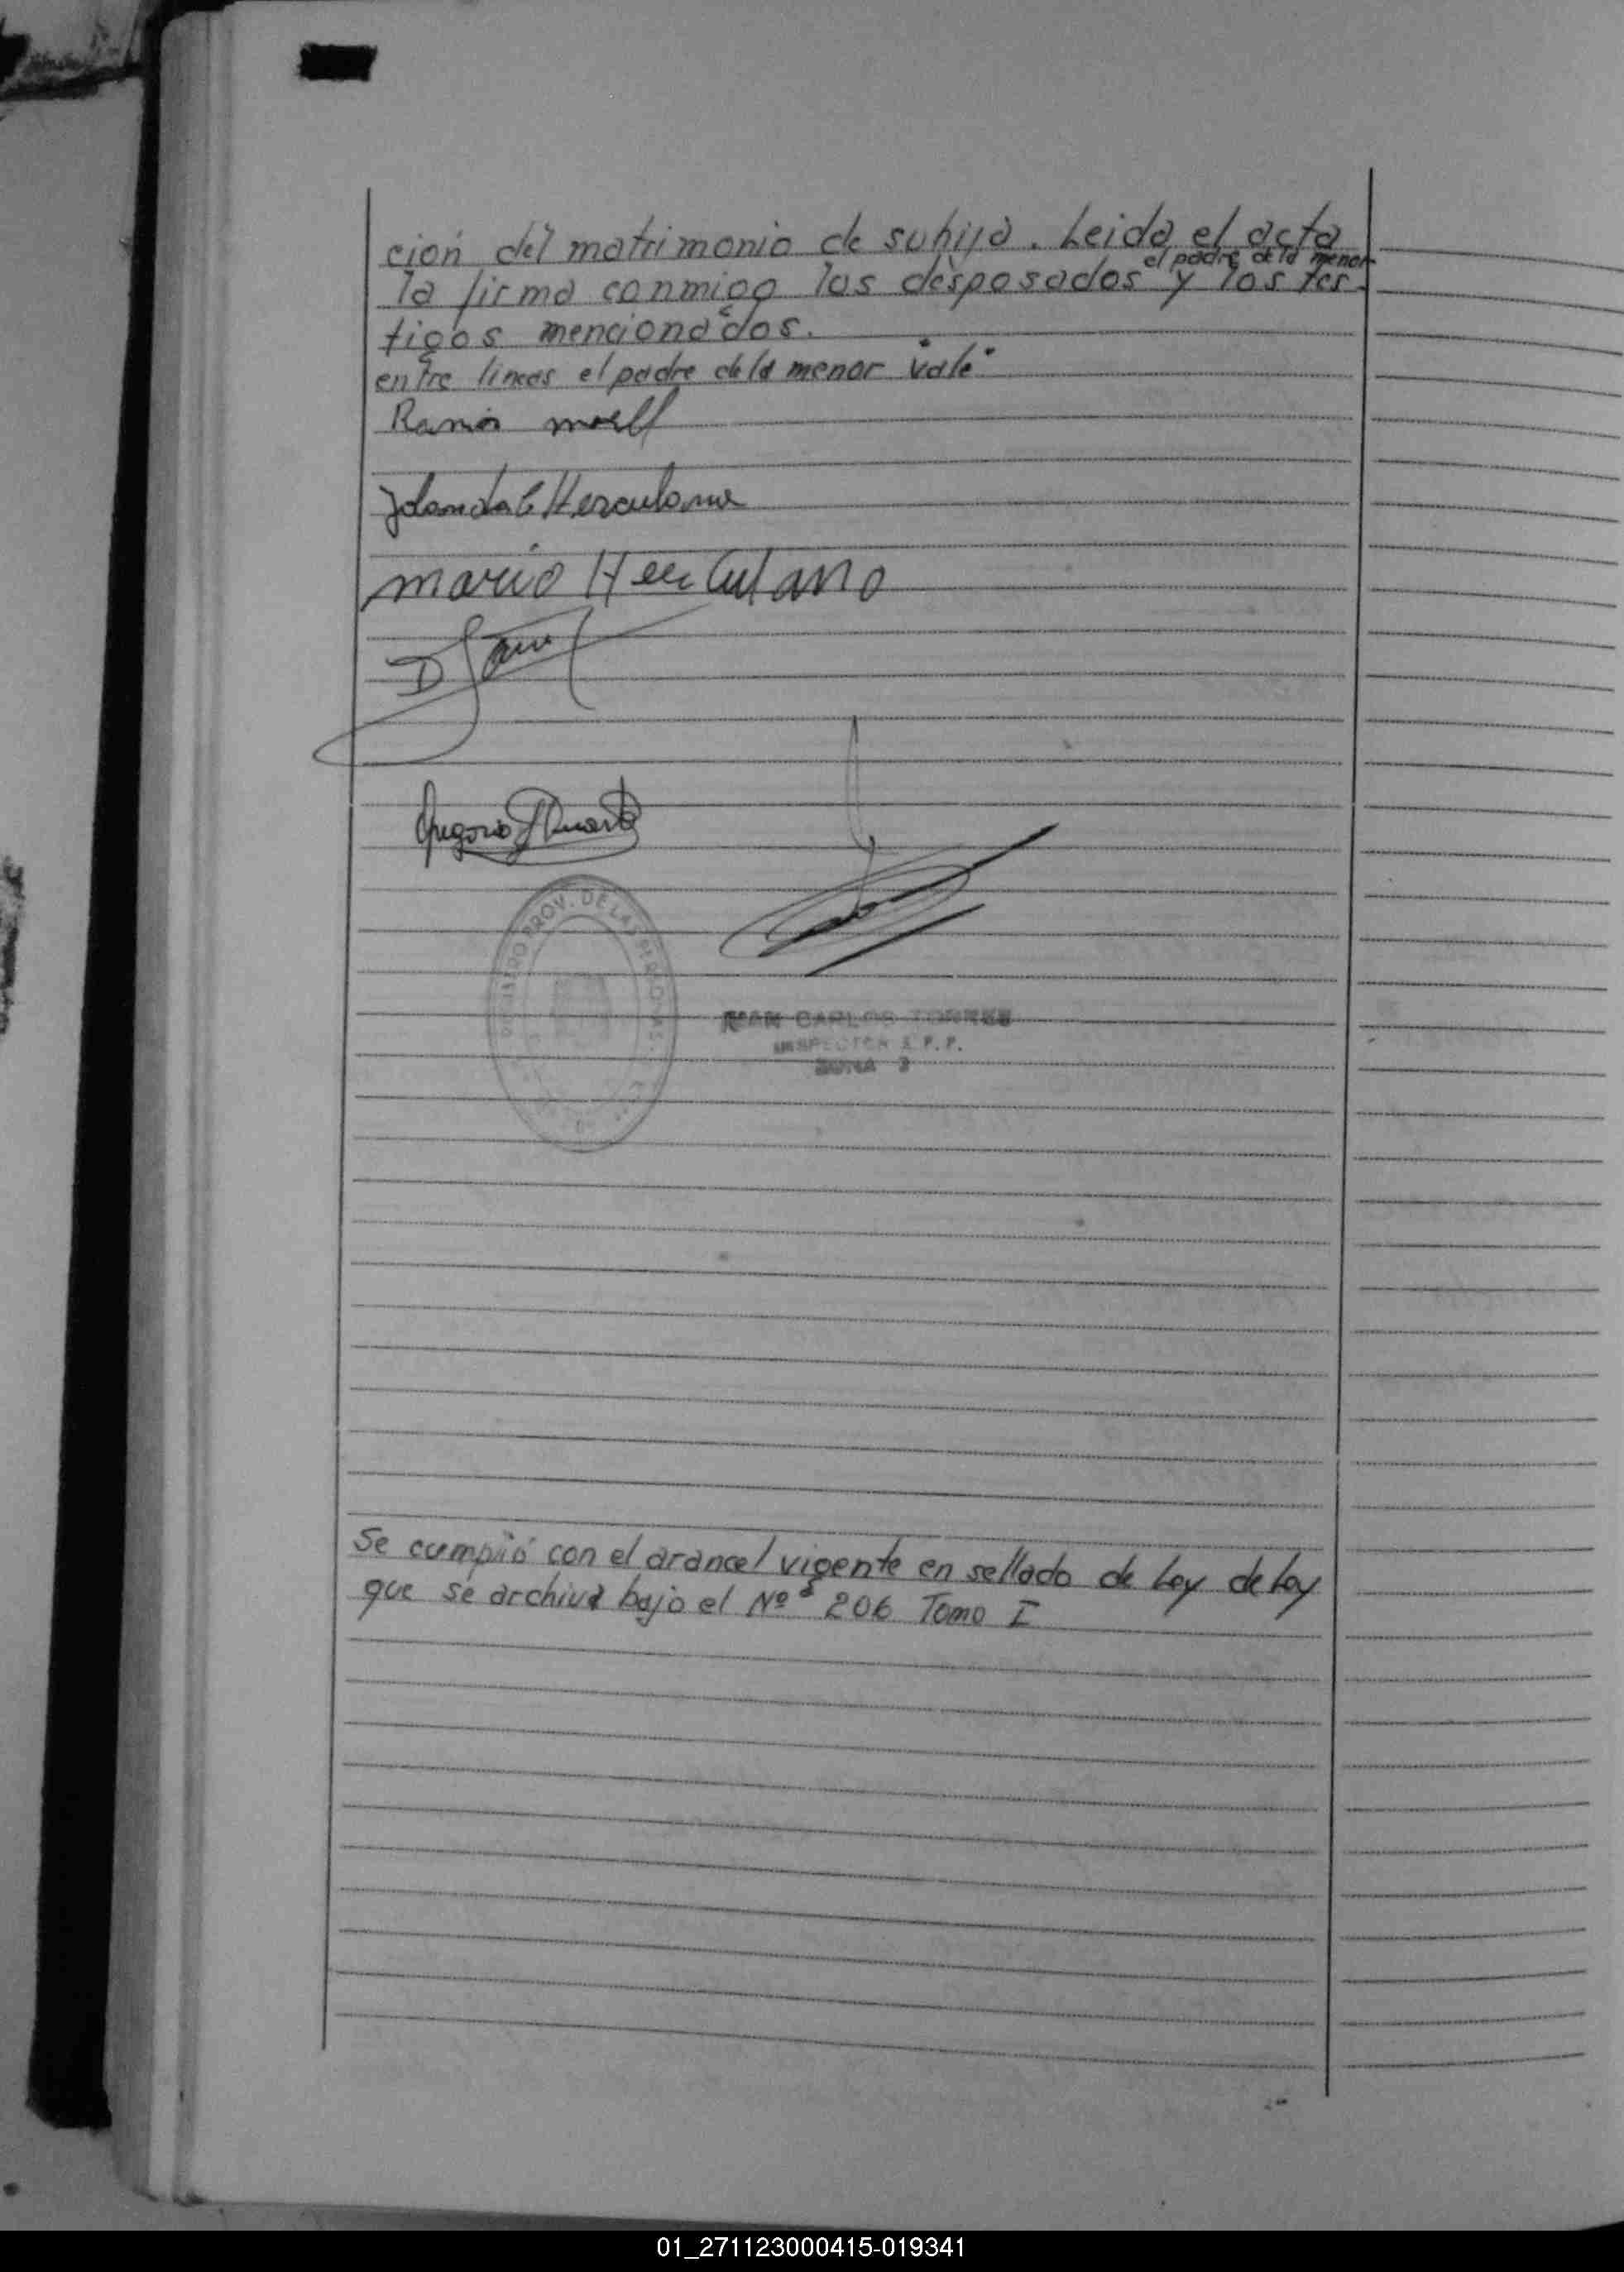 ción del matrimonio de su hija. Leida el acta
el padre de la menor
la firma conmigo los desposados y los tes-
tigos mencionados.
entre lineas el padre de la menor "vale"
Ramón
Herculano
mario Herculano
D
Gregorio Duarte
REGISTRO PROV. DE LAS PERSONAS
JUAN CARLOS TORRES
INSPECTOR
ZONA
Se cumplió con el arancel vigente en sellado de Ley de Ley
que se archiva bajo el Nº 206 Tomo I
01_271123000415-019341